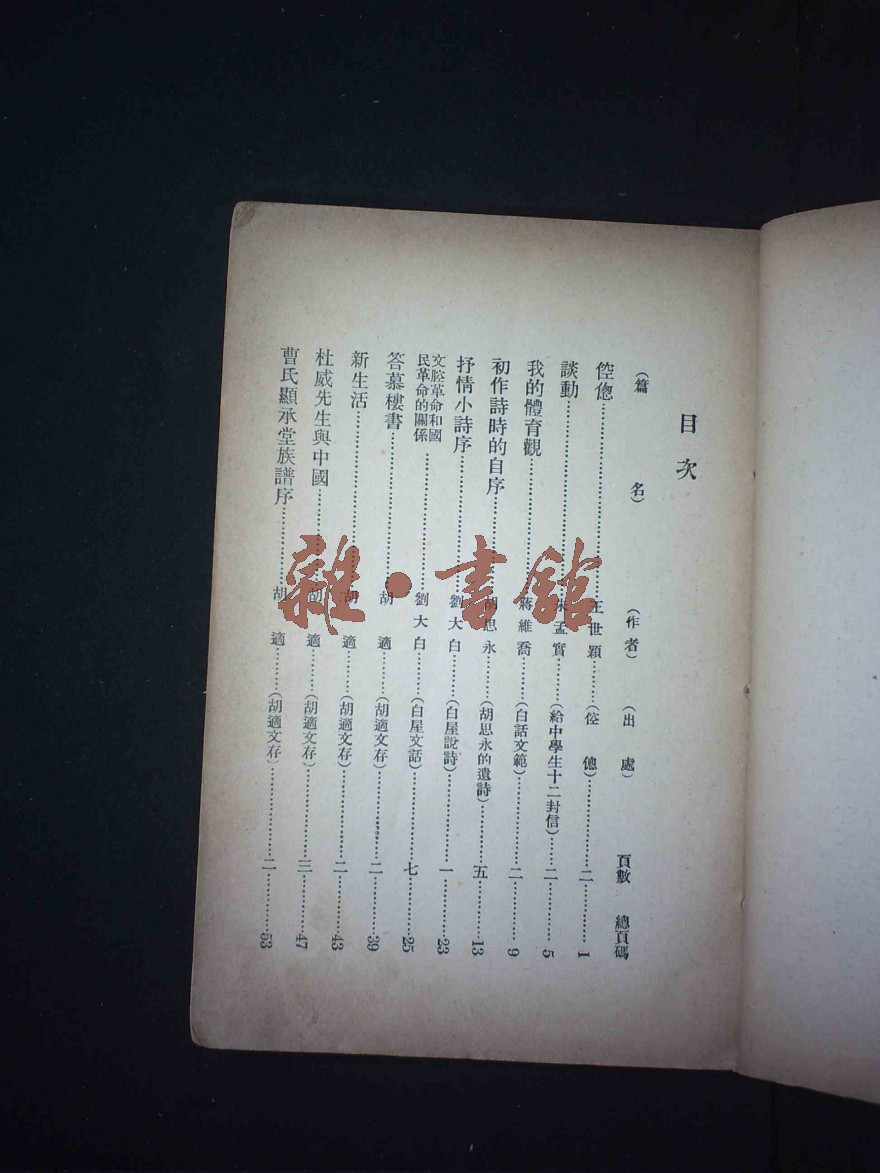 目次
（篇名）（作者）（出處）頁數 總頁碼
倥傯⋯⋯王世穎⋯⋯（倥傯）⋯⋯二⋯⋯1
談動⋯⋯朱孟實⋯⋯（給中學生十二封信）⋯⋯二⋯⋯5
我的體育觀⋯⋯蔣維喬⋯⋯（白話文範）⋯⋯二⋯⋯9
初作詩時的自序⋯⋯胡思永⋯⋯（胡思永的遺詩）⋯⋯五⋯⋯13
抒情小詩序⋯⋯劉大白⋯⋯（白屋說詩）⋯⋯一⋯⋯23
文腔革命和國民革命的關係⋯⋯劉大白⋯⋯（白屋文話）⋯⋯七⋯⋯25
答慕樓書⋯⋯胡適⋯⋯（胡適文存）⋯⋯二⋯⋯39
新生活⋯⋯胡適⋯⋯（胡適文存）⋯⋯二⋯⋯43
杜威先生與中國⋯⋯胡適⋯⋯（胡適文存）⋯⋯三⋯⋯47
曹氏顯承堂族譜序⋯⋯胡適⋯⋯（胡適文存）⋯⋯二⋯⋯53
雜·書館